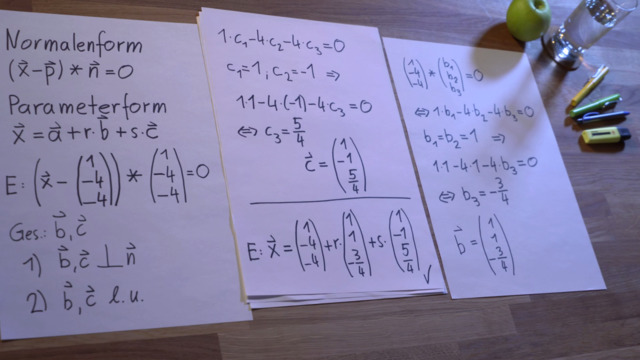 Normalenform
(x⃗-p⃗)*n⃗=0
Parameterform
x⃗=a⃗+r·b⃗+s·c⃗
E: (x⃗-(1 -4 -4))*(1 -4 -4)=0
Ges.: b⃗,c⃗
1) b⃗,c⃗ ⊥ n⃗
2) b⃗,c⃗ l.u.
1·c₁-4·c₂-4·c₃=0
c₁=1; c₂=-1 ⇒
1·1-4·(-1)-4·c₃=0
⇔ c₃=5/4
c⃗=(1 -1 5/4)
E: x⃗=(1 -4 -4)+r·(1 1 -3/4)+s·(1 -1 5/4) ✓
(1 -4 -4)*(b₁ b₂ b₃)=0
⇔ 1·b₁-4·b₂-4·b₃=0
b₁=b₂=1 ⇒
1·1-4·1-4·b₃=0
⇔ b₃=-3/4
b⃗=(1 1 -3/4)